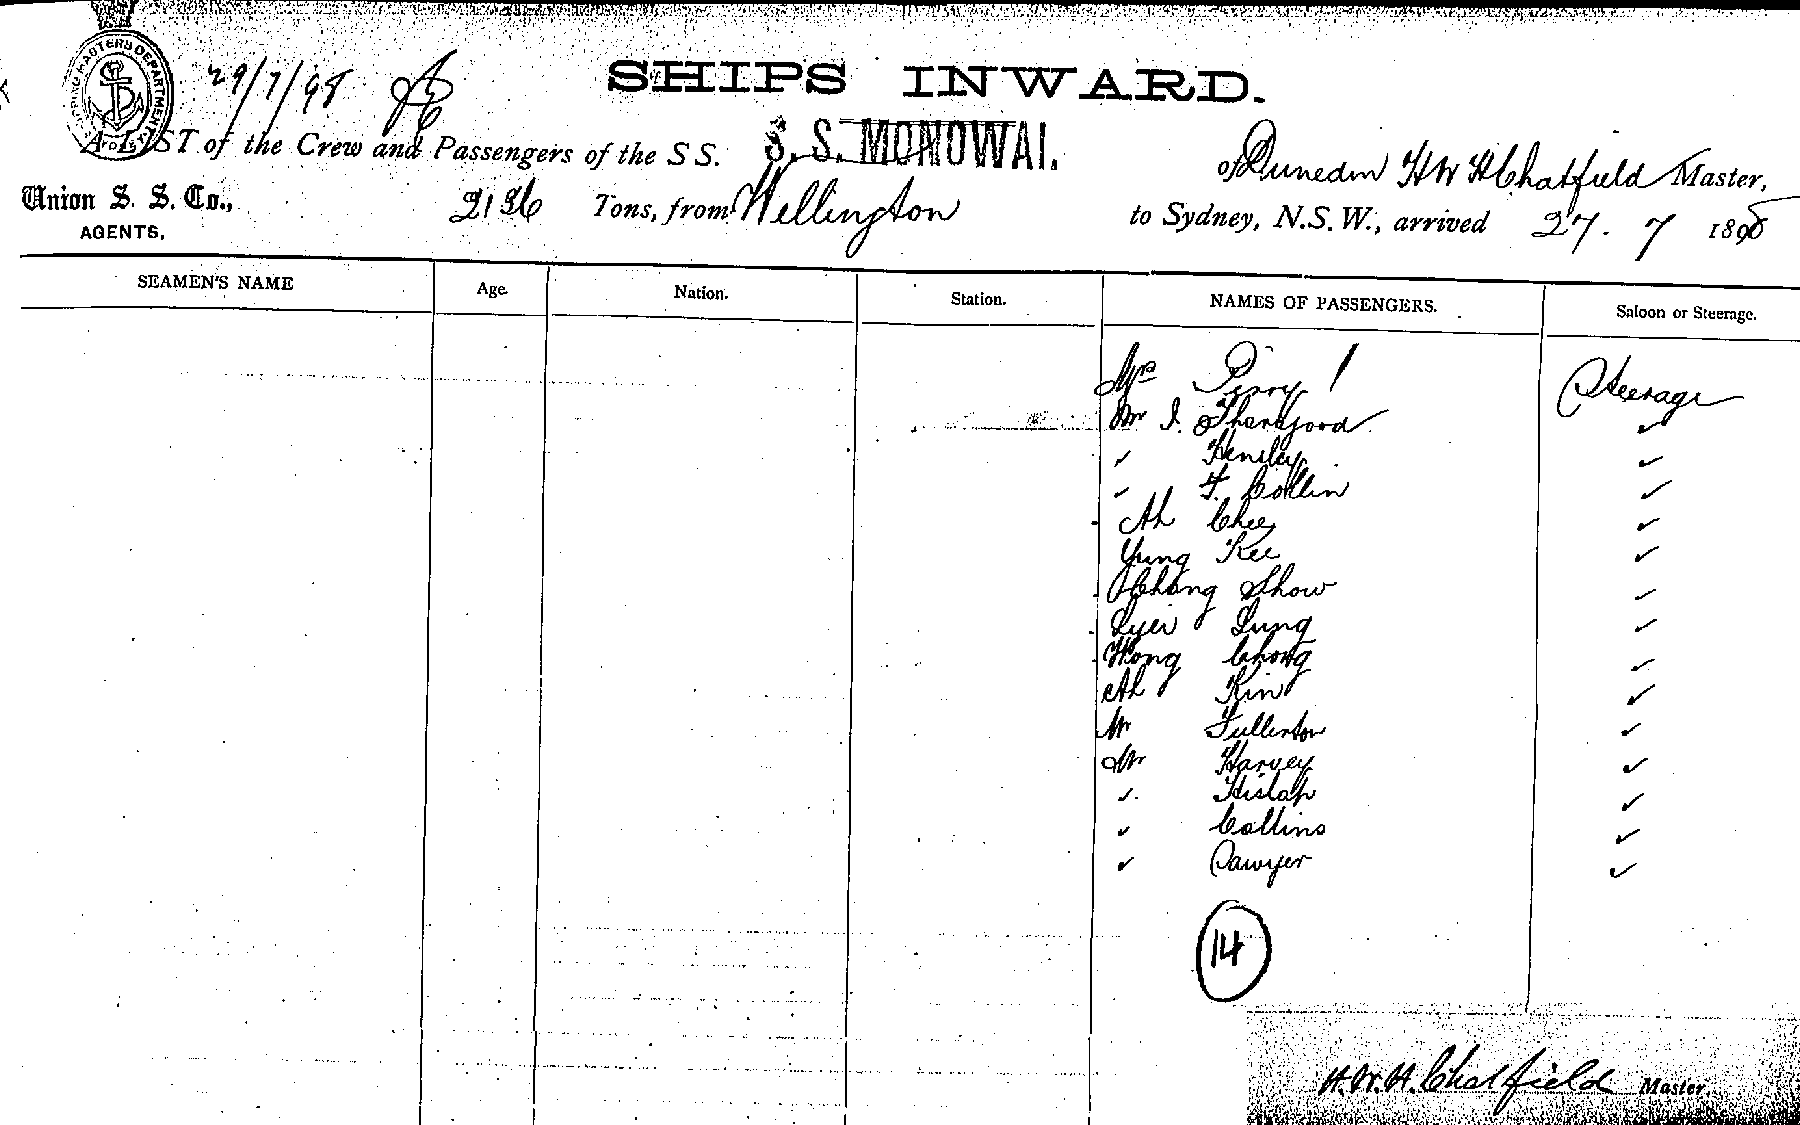 SHIPPING MASTERS DEPARTMENT
29/7/98
SHIPS INWARD.
A LIST of the Crew and Passengers of the SS. S. S. MONOWAI. of Dunedin H W H Chatfield Master,
Union S. S. Co., AGENTS, 2136 Tons, from Wellington to Sydney, N.S.W., arrived 27. 7 1898
SEAMEN'S NAME Age. Nation. Station. NAMES OF PASSENGERS. Saloon or Steerage.
Mrs Perry 1 Steerage
Mr I. ✓
✓ Hensley ✓
✓ F. Collin ✓
Ah Chee ✓
Yung Kee ✓
Chong Show ✓
Lyer Lung ✓
Wong Chong ✓
Ah Kin ✓
Mr Fullerton ✓
Mr Harvey ✓
✓ Hislop ✓
✓ Collins ✓
✓ Sawyer ✓
14
H. W. H. Chatfield Master